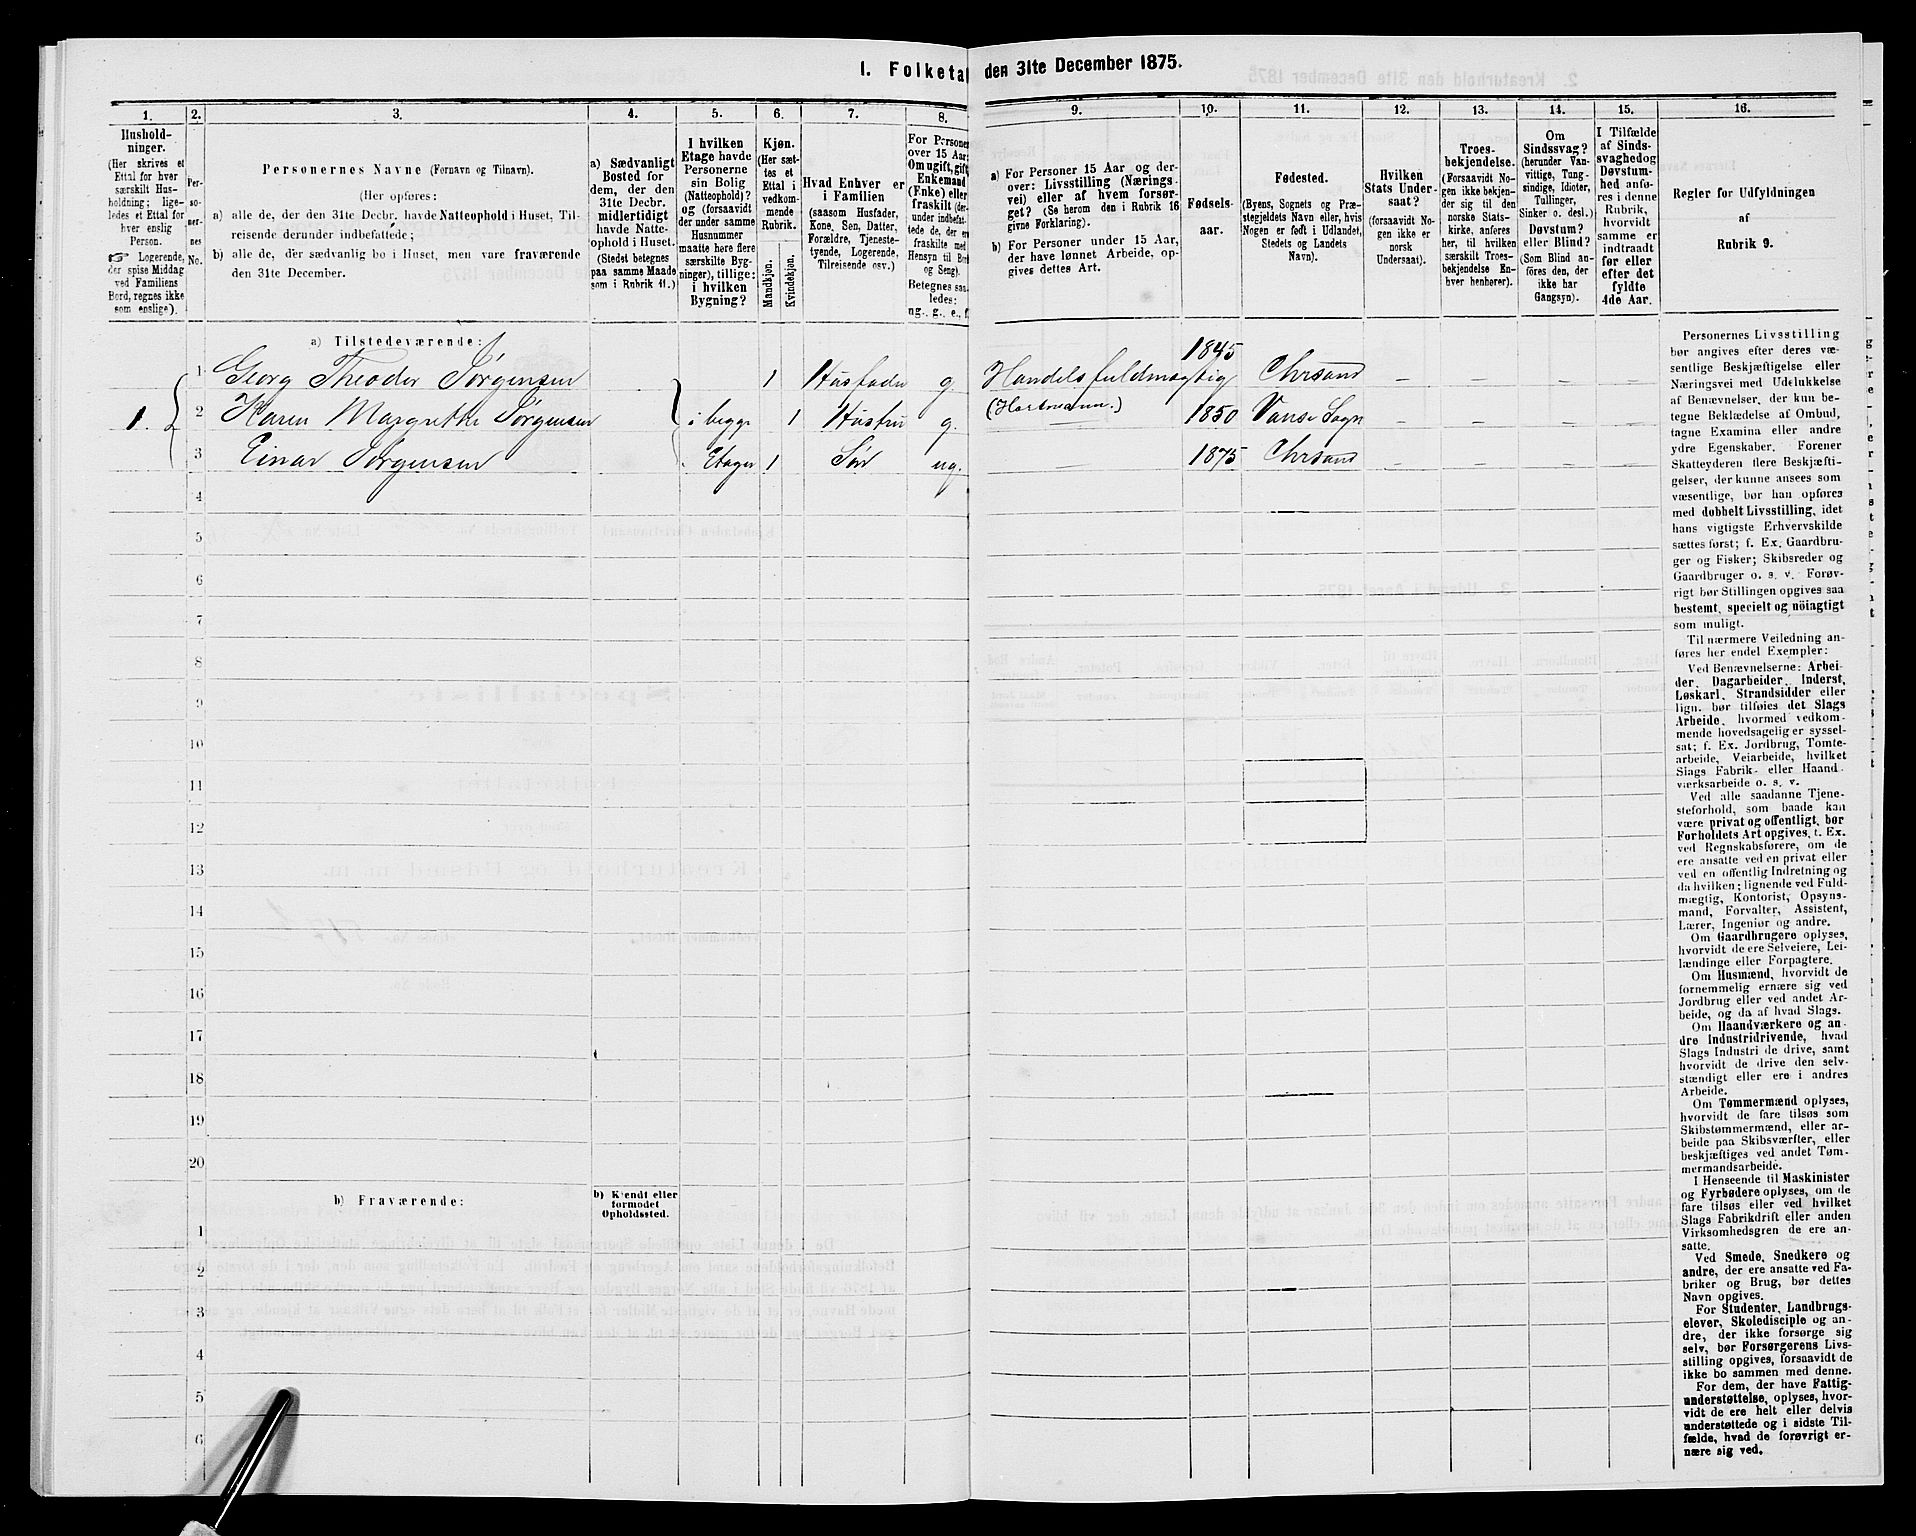 I. Folketal den 31te December 1875.
1.
2.
3.
4.
5.
6.
7.
8.
9.
10.
11.
12.
13.
14.
15.
16.
Hushold-
ninger.
(Her skrives et
Ettal for hver
særskilt Hus-
holdning; lige-
ledes et Ettal for
hver enslig
Person.
☞ Logerende,
der spise Middag
ved Familiens
Bord, regnes ikke
som enslige).
Per-
so-
ner-
nes
No.
Personernes Navne (Fornavn og Tilnavn).
(Her opføres:
a) alle de, der den 31te Decbr. havde Natteophold i Huset, Til-
reisende derunder indbefattede;
b) alle de, der sædvanlig bo i Huset, men vare fraværende
den 31te December.
a) Sædvanligt
Bosted for
dem, der den
31te Decbr.
midlertidigt
havde Natte-
ophold i Huset.
(Stedet betegnes
paa samme Maade
som i Rubrik 11.)
I hvilken
Etage havde
Personerne
sin Bolig
(Natteophold)?
og (forsaavidt
der under samme
Husnummer
maatte høre flere
særskilte Byg-
ninger), tillige:
i hvilken
Bygning?
Kjøn.
(Her sæt-
tes et
Ettal i
vedkom-
mende
Rubrik.
Mandkjøn.
Kvindekjøn.
Hvad Enhver er
i Familien
(saasom Husfader,
Kone, Søn, Datter,
Forældre, Tjeneste-
tyende, Logerende,
Tilreisende osv.)
For Personer
over 15 Aar:
Om ugift, gift,
Enkemand
(Enke) eller
fraskilt (der-
under indbefat-
tede de, der ere
fraskilte med
Hensyn til Bord
og Seng).
Betegnes saa-
ledes:
ug., g., e., f.
a) For Personer 15 Aar og der-
over: Livsstilling (Nærings-
vei) eller af hvem forsør-
get? (Se herom den i Rubrik 16
givne Forklaring).
b) For Personer under 15 Aar,
der have lønnet Arbeide, op-
gives dettes Art.
Fødsels-
aar.
Fødested.
(Byens, Sognets og Præ-
stegjeldets Navn eller, hvis
Nogen er født i Udlandet,
Stedets og Landets
Navn).
Hvilken
Stats Under-
saat?
(forsaavidt No-
gen ikke er
norsk
Undersaat).
Troes-
bekjendelse.
(Forsaavidt No-
gen ikke bekjen-
der sig til den
norske Stats-
kirke, anføres
her, til hvilken
særskilt Troes-
bekjendelse En-
hver henhører).
Om
Sindssvag?
(herunder Van-
vittige, Tung-
sindige, Idioter,
Tullinger,
Sinker o. desl.)
Døvstum?
eller Blind?
(Som Blind an-
føres den, der
ikke har
Gangsyn).
I Tilfælde
af Sinds-
svaghed og
Døvstum-
hed anfø-
res i denne
Rubrik,
hvorvidt
samme er
indtraadt
før eller
efter det
fyldte
4de Aar.
Regler for Udfyldningen
af
Rubrik 9.
a) Tilstedeværende:
1 Georg Theodor Jørgensen 1 Husfader g Handelsfuldmægtig 1845 Chrsand – – – –
(Hartmann.)
1. 2 Karen Margrethe Jørgensen i begge 1 Hustru g. — 1850 Vanse Sogn – – – –
3 Einar Jørgensen Etager 1 Søn ug. — 1875 Chrsand – – – –
4
5
6
7
8
9
10
11
12
13
14
15
16
17
18
19
20
b) Fraværende:
b) Kjendt eller
formodet
Opholdssted.
1
2
3
4
5
6
Personernes Livsstilling
bør angives efter deres væ-
sentlige Beskjæftigelse eller
Næringsvei med Udelukkelse
af Benævnelser, der kun be-
tegne Beklædelse af Ombud,
tagne Examina eller andre
ydre Egenskaber. Forener
Skatteyderen flere Beskjæfti-
gelser, der kunne ansees som
væsentlige, bør han opføres
med dobbelt Livsstilling, idet
hans vigtigste Erhvervskilde
sættes først; f. Ex. Gaardbru-
ger og Fisker; Skibsreder og
Gaardbruger o. s. v. Forøv-
rigt bør Stillingen opgives saa
bestemt, specielt og nöiagtigt
som muligt.
Til nærmere Veiledning an-
føres her endel Exempler:
Ved Benævnelserne: Arbei-
der, Dagarbeider, Inderst,
Løskarl, Strandsidder eller
lign. bør tilføies det Slags
Arbeide, hvormed vedkom-
mende hovedsagelig er syssel-
sat; f. Ex. Jordbrug, Tomte-
arbeide, Veiarbeide, hvilket
Slags Fabrik- eller Haand-
værksarbeide o. s. v.
Ved alle saadanne Tjene-
steforhold, som baade kan
være privat og offentligt, bør
Forholdets Art opgives, t. Ex.
ved Regnskabsførere, om de
ere ansatte ved en privat eller
ved en offentlig Indretning og
da hvilken; lignende ved Fuld-
mægtig, Kontorist, Opsyns-
mand, Forvalter, Assistent,
Lærer, Ingeniør og andre.
Om Gaardbrugere oplyses,
hvorvidt de ere Selveiere, Lei-
lændinge eller Forpagtere.
Om Husmænd, hvorvidt de
fornemmelig ernære sig ved
Jordbrug eller ved andet Ar-
beide, og da af hvad Slags.
Om Haandværkere og an-
dre Industridrivende, hvad
Slags Industri de drive, samt
hvorvidt de drive den selv-
stændigt eller ere i andres
Arbeide.
Om Tømmermænd oplyses,
hvorvidt de fare tilsøs som
Skibstømmermænd, eller ar-
beide paa Skibsværfter, eller
beskjæftiges ved andet Tøm-
mermandsarbeide.
I Henseende til Maskinister
og Fyrbødere oplyses, om de
fare tilsøs eller ved hvilket
Slags Fabrikdrift eller anden
Virksomhedsgren de ere an-
satte.
Ved Smede, Snedkere og
andre, der ere ansatte ved Fa-
briker og Brug, bør dettes
Navn opgives.
For Studenter, Landbrugs-
elever, Skoledisciple og an-
dre, der ikke forsørge sig
selv, bør Forsørgerens Livs-
stilling opgives, forsaavidt de
ikke bo sammen med denne.
For dem, der have Fattig-
understøttelse, oplyses, hvor-
vidt de ere helt eller delvis
understøttede og i sidste Til-
fælde, hvad de forøvrigt er-
nære sig ved.